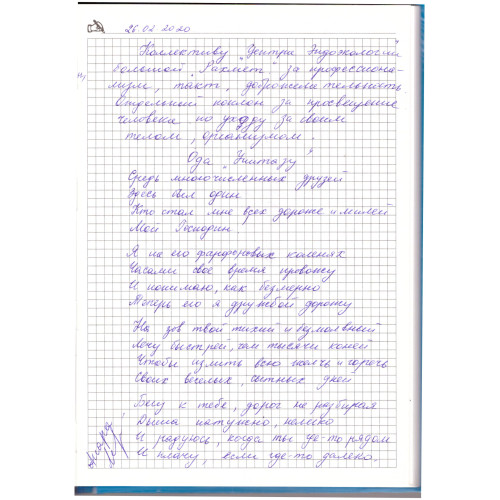 26.02.2020
Коллективу "Центра Эндоэкологии"
большой "Рахмет" за профессиона-
лизм, такт, доброжелательность.
Отдельный поклон за просвещение
человека по уходу за своим
телом, организмом.
Ода "Унитазу"
Средь многочисленных друзей
Здесь был один
Кто стал мне всех дороже и милей
Мой Господин
Я на его фарфоровых коленях
Часами своё время провожу
И понимаю, как безмерно
Теперь его я дружбой дорожу
На зов твой тихий и безмолвный
Лечу быстрей, чем тысячи коней
Чтобы излить всю желчь и горечь
Своих веселых, сытных дней
Бегу к тебе, дорог не разбирая
Дыша натужно, нелегко
И радуюсь, когда ты где-то рядом
И плачу, если где-то далеко.